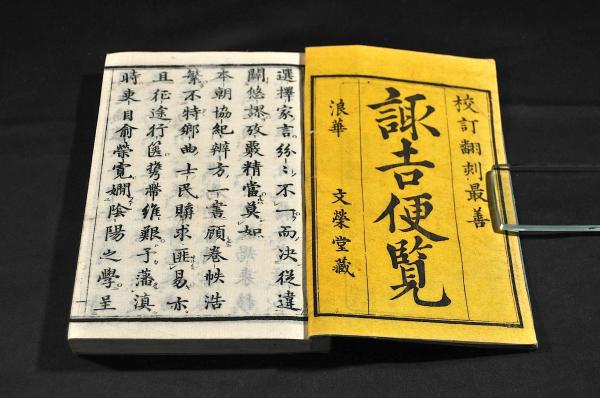 校訂翻刻最善
諏吉便覧
浪華 文榮堂藏
選擇家言紛〻不一而決從違
關悠謬攷覈精當莫如
本朝協紀辨方一書顧卷帙浩
繁不特鄉曲士民購求匪易亦
且征途行篋携帶維艱于藩滇
時東目俞榮寛嫺陰陽之學呈